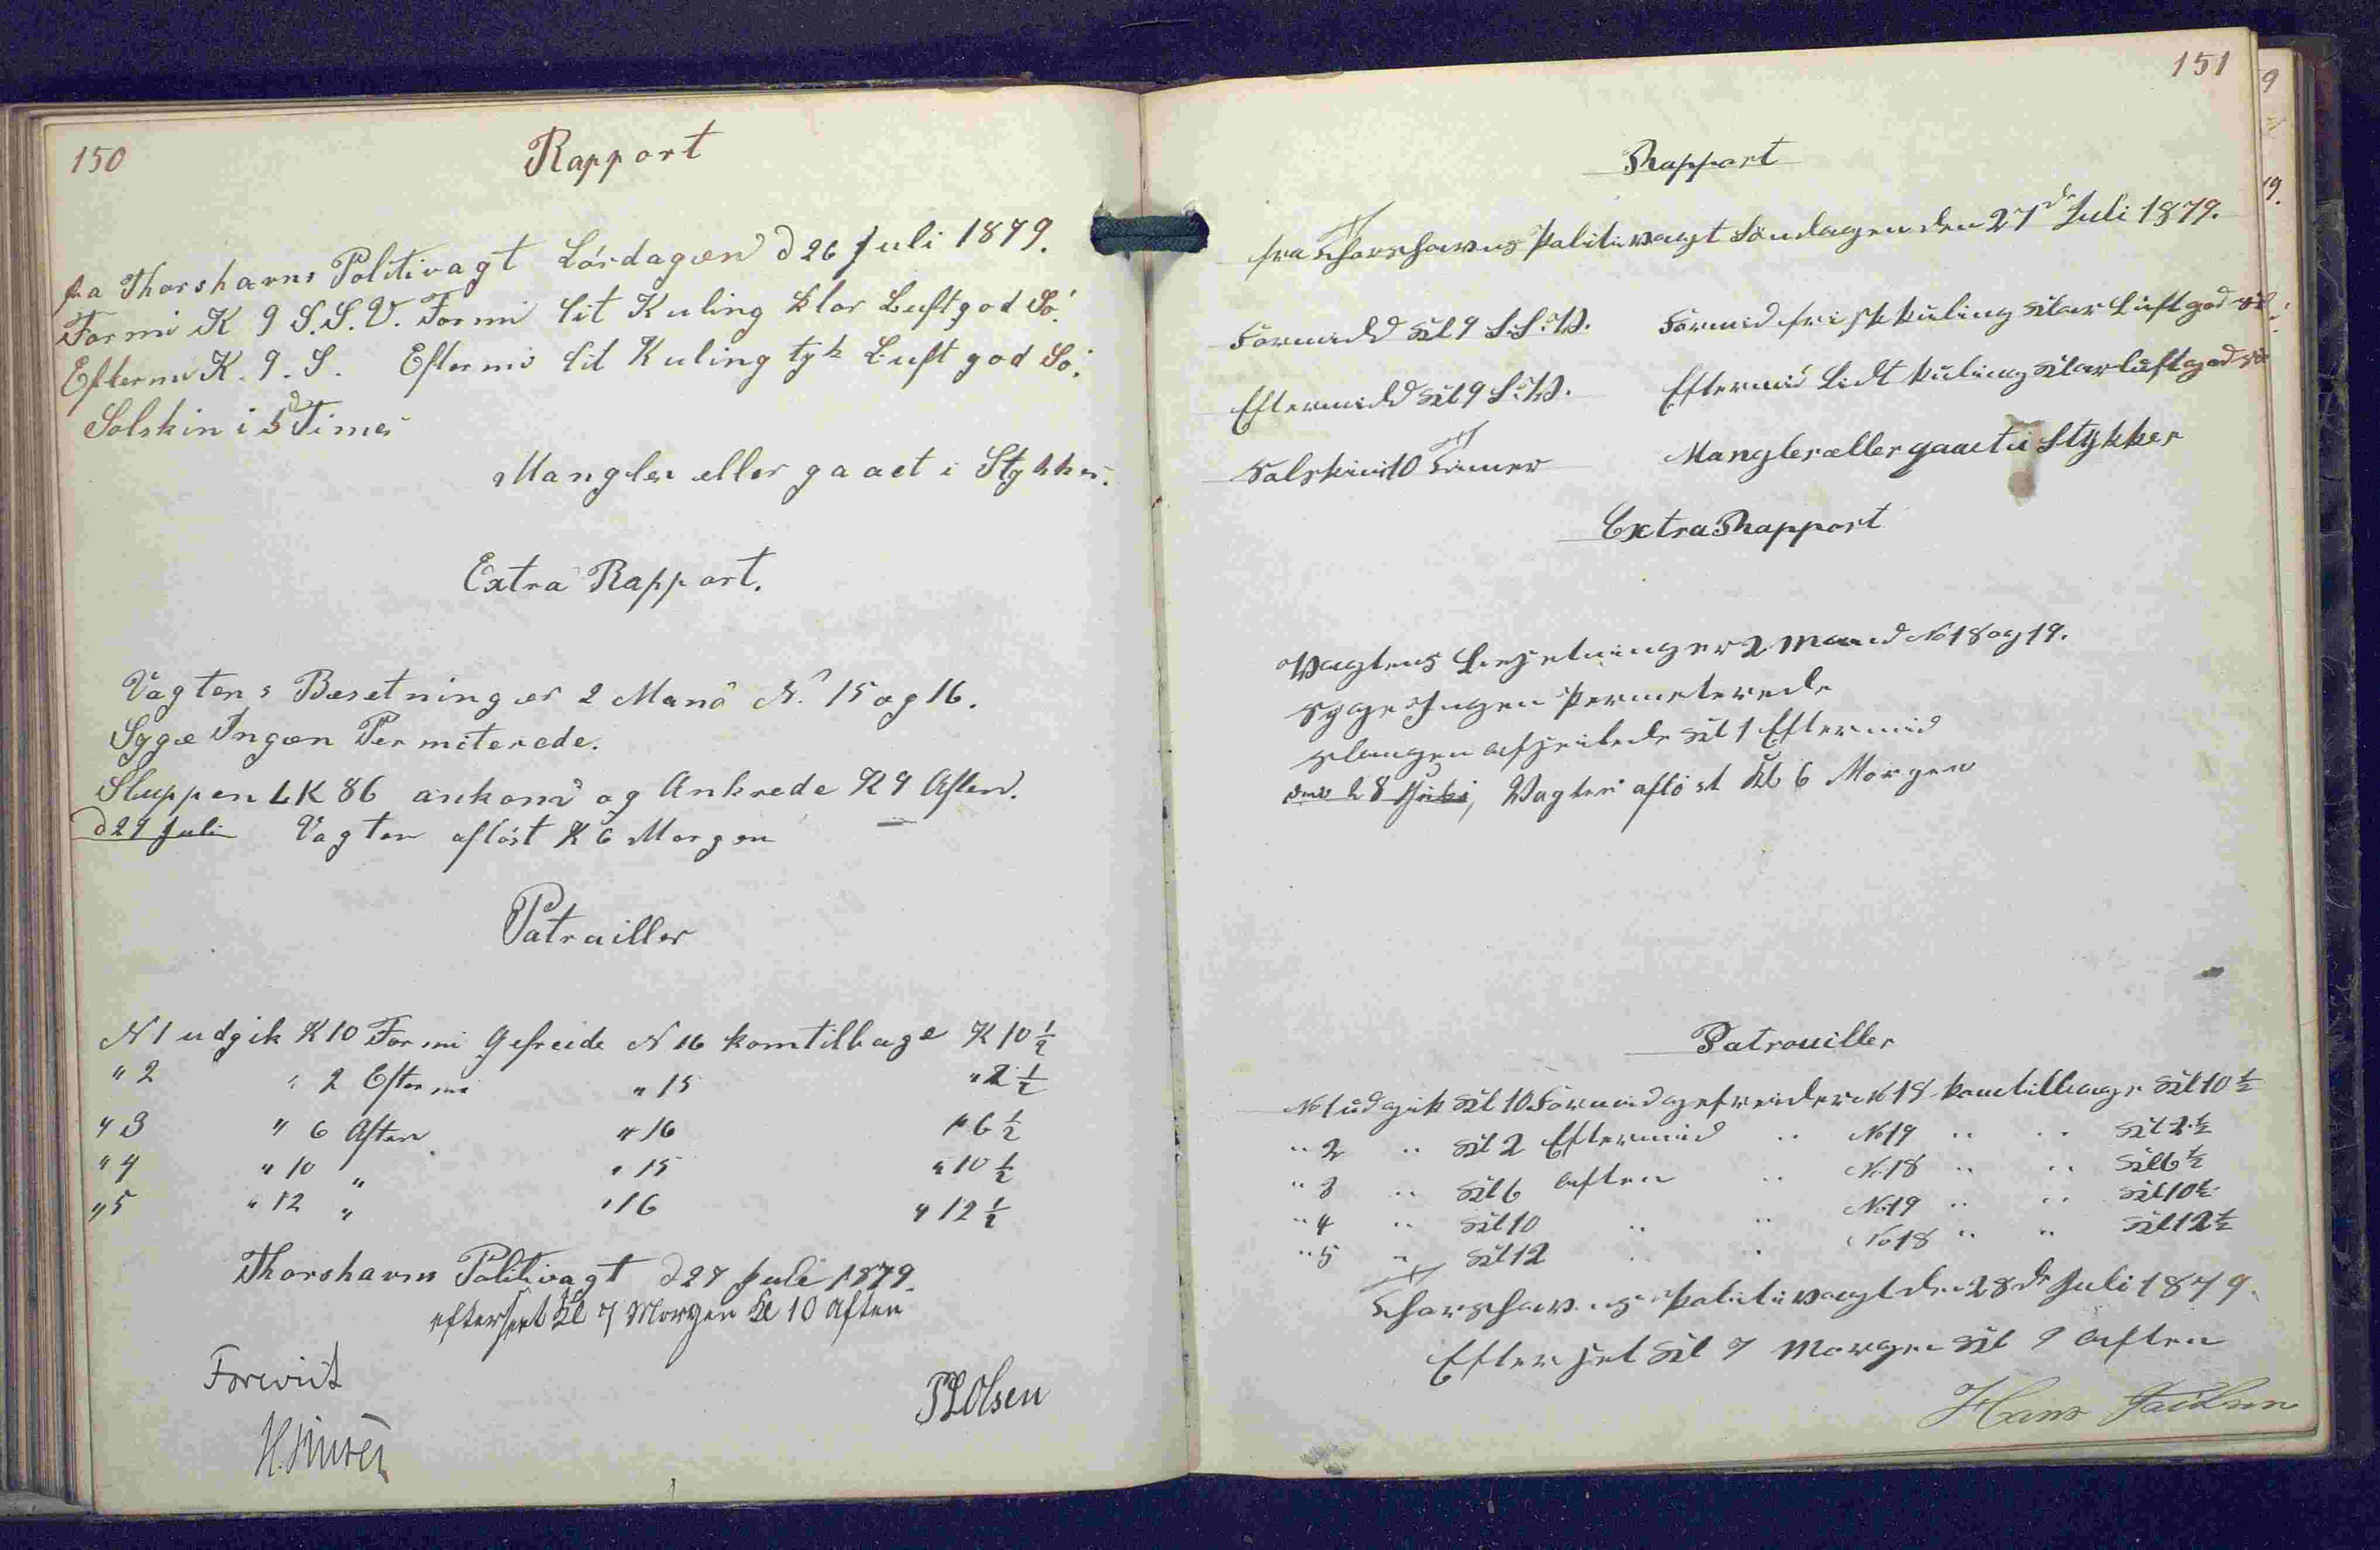 150
Rapport
fra Thorshavns Politivagt Lörsdagen d 26 Juli 1879.
Formi K 9 S.S.V. Formi lit Kuling klar Luft god Sö.
Eftermi K. 9. S. Eftermi lit Kuling tyk Luft god Sö.
Solskin i 5 Timer
Mangler eller gaaet i Stykker.
Extra Rapport.
Vagtens Besetning er 2 Mand N. 15 og 16.
Syge Ingen Permiterede.
Sluppen LK 86 ankom og Ankrede K 9 Aften.
d 27 Juli Vagten aflöst K 6 Morgen
Patrailler
N 1 udgik K 10 Formi Gefreide N 16 kom tilbage K 10 ½
" 2 " 2 Eftermi " 15 " 2 ½
" 3 " 6 Aften " 16 " 6 ½
" 4 " 10 " " 15 " 10 ½
" 5 " 12 " " 16 " 12 ½
Thorshavns Politivagt d 27 Juli 1879.
efterseet Kl 7 Morgen Kl 10 Aften
Forevist
PLOlsen
151
Rapport
fra Thorshavns Politivagt Söndagen den 27de Juli 1879.
Formidd Kl 9 S.S.V. Formid frisk Kuling Klar Luft god Sö.
Eftermidd Kl 9 S.V. Eftermid Lidt Kuling Klar luft god Sö
Solskin i 10 Timer Mangler eller gaaet i Stykker
Extra Rapport
Vagtens Besetning er 2 Mand No 18 og 19.
Syge Ingen Permeterede
afseilede Kl 1 Eftermid
den 28 Juli, Vagten aflöst Kl 6 Morgen
Patrouiller
No 1 udgik Kl 10 Formid gefreider No 18 kom tilbage Kl 10 ½
" 2 " Kl 2 Eftermid " No 19 " " Kl 2 ½
" 3 " Kl 6 Aften " No 18 " " Kl 6 ½
" 4 " Kl 10 " " No 19 " " Kl 10 ½
" 5 " Kl 12 " " No 18 " " Kl 12 ½
Thorshavns Politivagt den 28de Juli 1879.
Efterset Kl 7 Morgen Kl 9 Aften
Hans